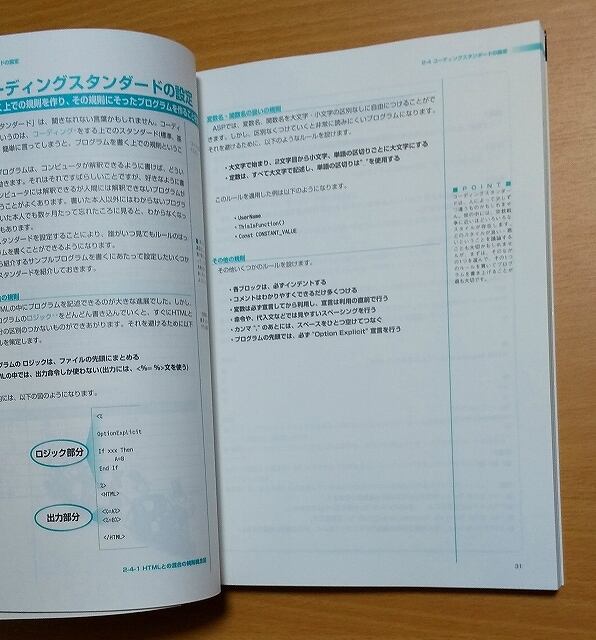 ドの設定
ーディングスタンダードの設定
く上での規則を作り、その規則にそったプログラムを作る
タンダード」は、聞きなれない言葉かもしれません。コーディ
いうのは、コーディングをする上でのスタンダード(標準、基
簡単に言ってしまうと、プログラムを書く上での規則という
プログラムは、コンピュータが解釈できるように書けば、どうい
動きます。それはそれですばらしいことですが、好きなように書
ンピュータには解釈できるが人間には解釈できないプログラムが
うことがよくあります。書いた本人以外にはわからないプログ
いた本人でも数ヶ月たって忘れたころに見ると、わからなくなっ
もあります。
スタンダードを設定することにより、誰がいつ見てもルールのはっ
ラムを書くことができるようになります。
ら紹介するサンプルプログラムを書くにあたって設定したいくつか
スタンダードを紹介しておきます。
の規則
MLの中にプログラムを記述できるのが大きな進展でした。しかし、
ログラムのロジックをどんどん書き込んでいくと、すぐにHTMLと
分の区別のつかないものができあがります。それを避けるために以下
ルを策定します。
グラムの ロジックは、ファイルの先頭にまとめる
MLの中では、出力命令しか使わない(出力には、<%= %>文を使う)
的には、以下の図のようになります。
ロジック部分
出力部分
<%
OptionExplicit
If xxx Then
A=B
End If
%>
<HTML>
<%=A%>
<%=B%>
</HTML>
2-4-1 HTMLとの混合の規則概念図
2-4 コーディングスタンダードの設定
変数名・関数名の扱いの規則
ASPでは、変数名、関数名を大文字・小文字の区別なしに自由につけることがで
きます。しかし、区別なくつけていくと非常に読みにくいプログラムになります。
それを避けるために、以下のようなルールを設けます。
・大文字で始まり、2文字目から小文字、単語の区切りごとに大文字にする
・定数は、すべて大文字で記述し、単語の区切りは"_"を使用する
このルールを適用した例は以下のようになります。
・UserName
・ThisIsFunction()
・Const CONSTANT_VALUE
その他の規則
その他いくつかのルールを設けます。
・各ブロックは、必ずインデントする
・コメントはわかりやすくできるだけ多くつける
・変数は必ず宣言してから利用し、宣言は利用の直前で行う
・命令や、代入文などでは見やすいスペーシングを行う
・カンマ","のあとには、スペースをひとつ空けてつなぐ
・プログラムの先頭では、必ず"Option Explicit"宣言を行う
POINT
コーディングスタンダー
ドは、人によって少しず
31